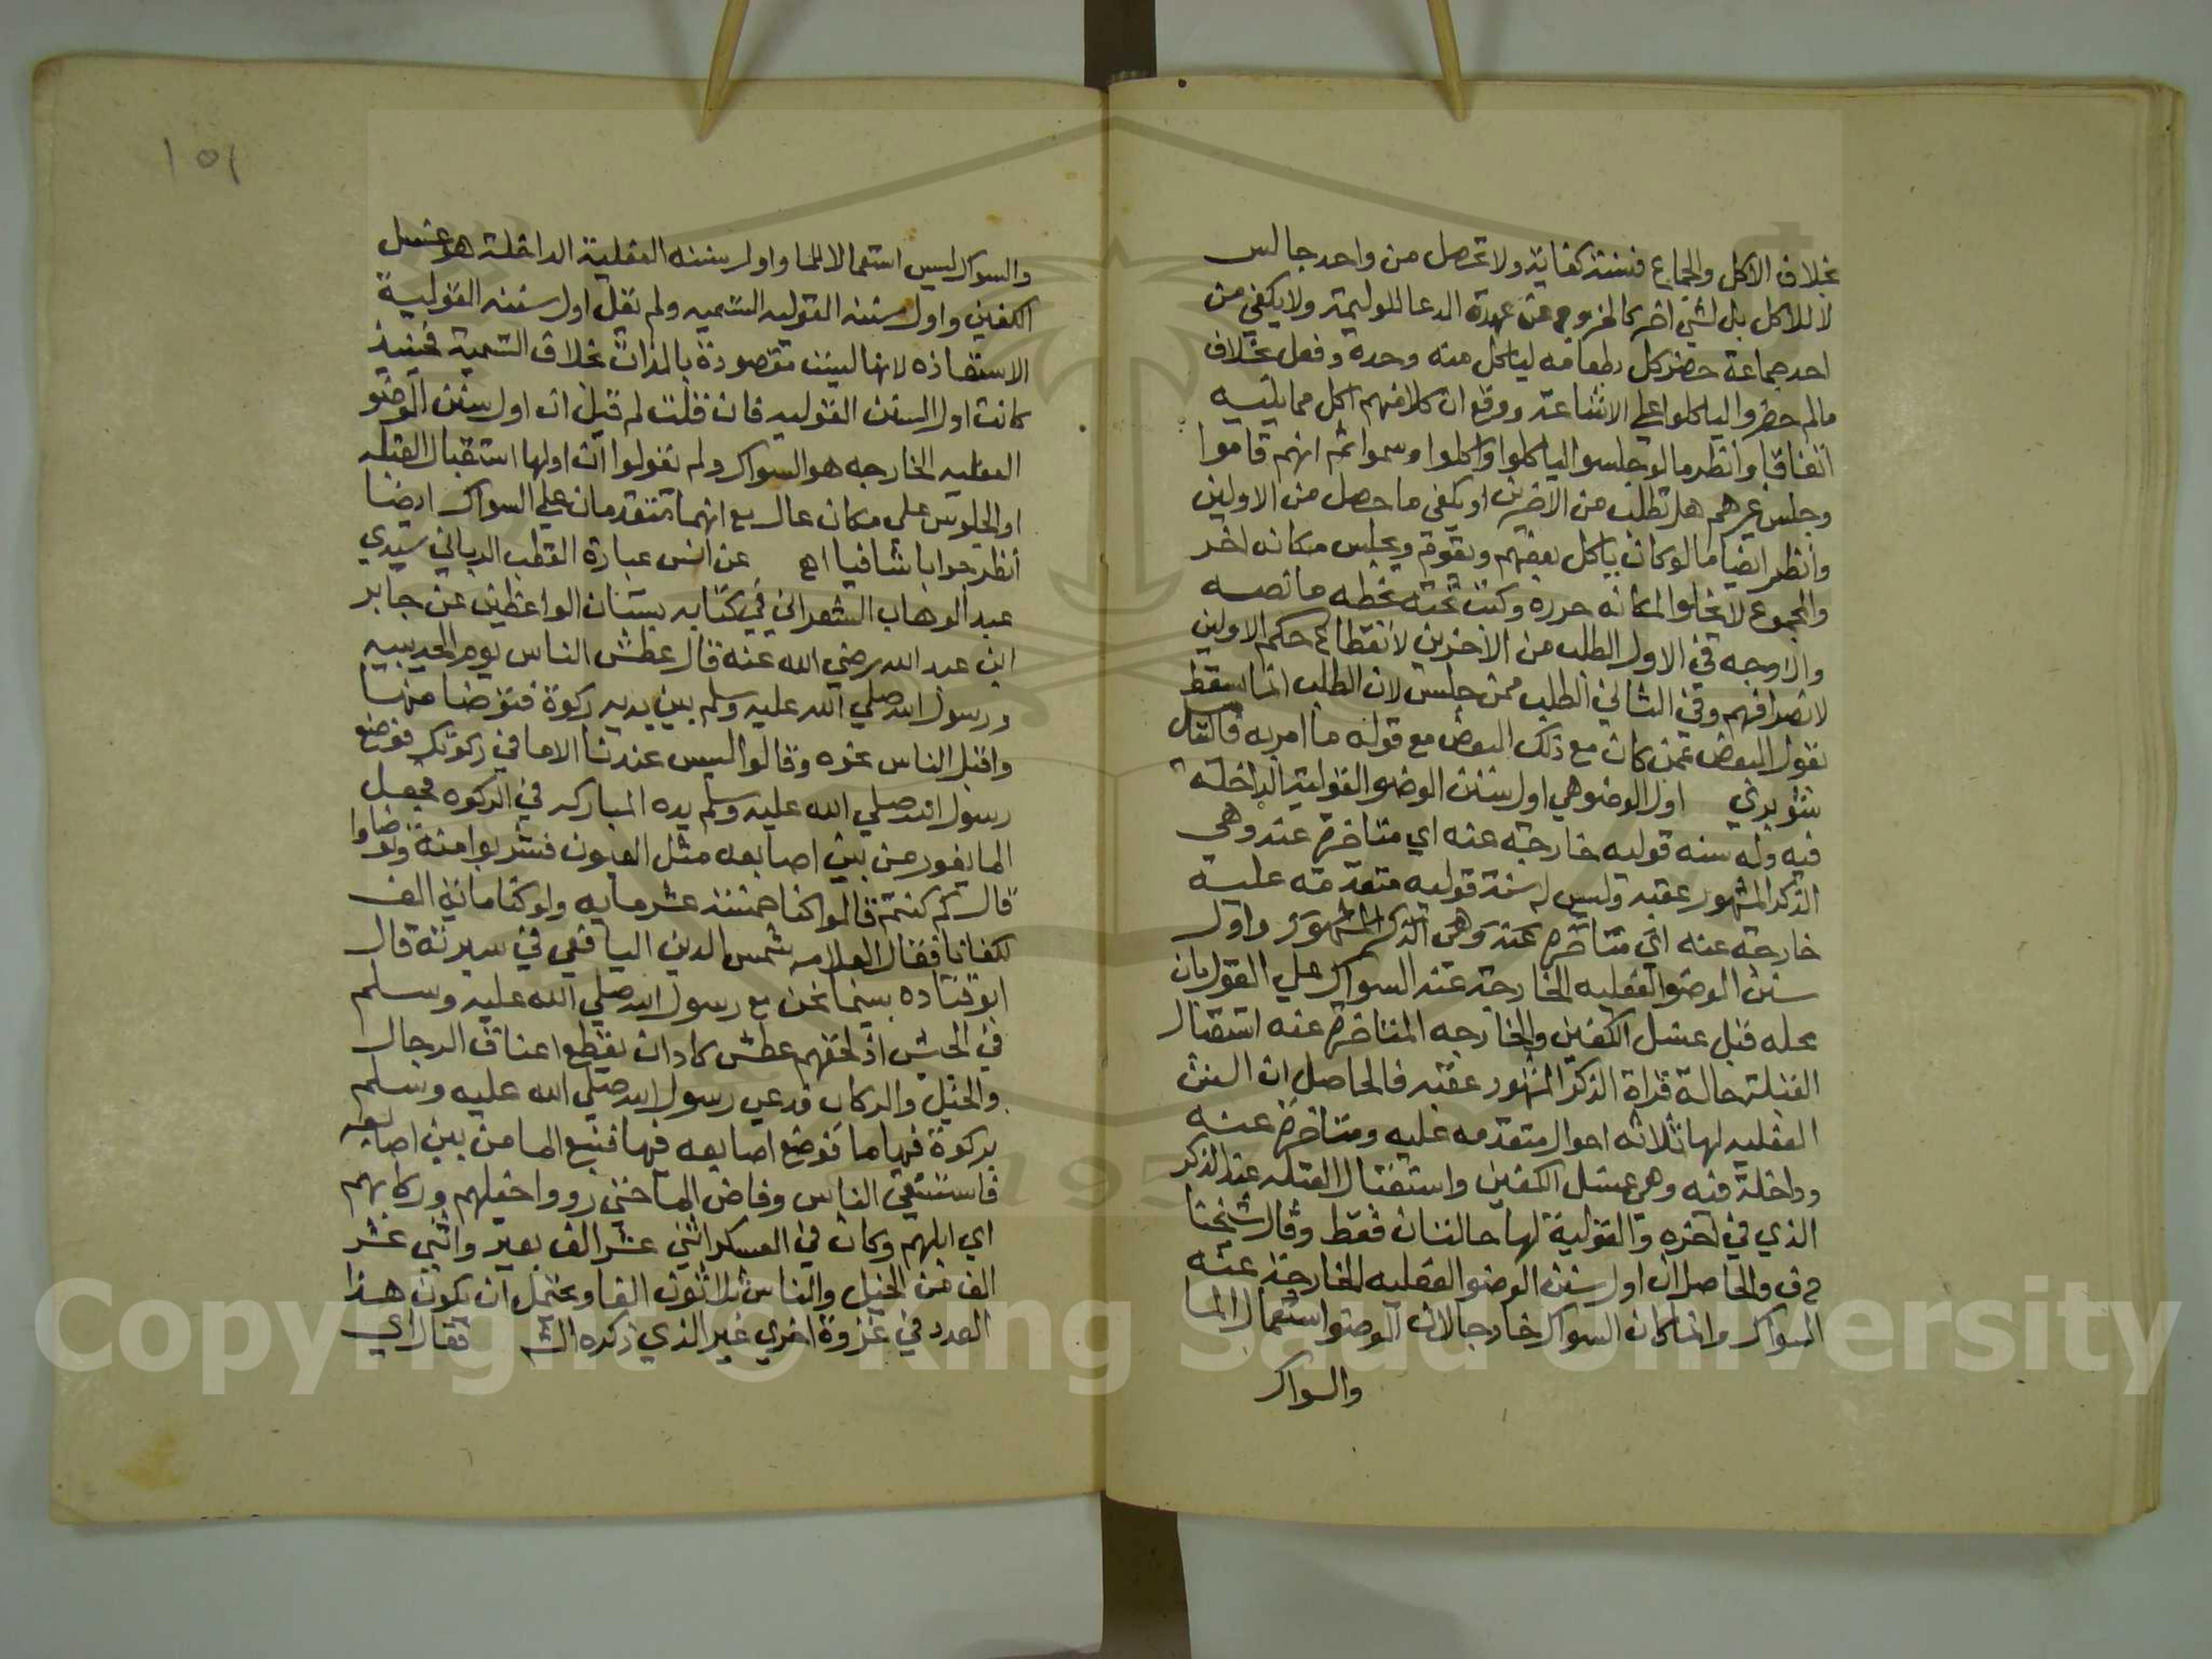 بخلاف الاكل والجماع فسنة كفاية ولا تحصل من واحد جالس
لا للاكل بل لشي اخر كالخروج عن عهدة الدعا للوليمة ولا يكفي من
احد جماعة حضر كل بطعامه لياكل منه وحده وفعل بخلاف
مالم حضروا لياكلوا علي الاشاعة ووقع ان كلا منهم اكل مما يليه
اتفاقا وانظر ما لو جلسوا لياكلوا واكلوا وسموا ثم انهم قاموا
وجلس غيرهم هل تطلب من الاخرين او يكفي ما حصل من الاولين
وانظر ايضا ما لو كان ياكل بعضهم ويقوم ويجلس مكانه اخر
والمجموع لا يخلوا المكانه حرره وكتب تحته بخطه ما نصه
والاوجه في الاول الطلب من الاخرين لانقطاع حكم الاولين
لانصرافهم وفي الثاني الطلب ممن جلس لان الطلب انما سقط
بقول البعض عمن كان مع ذلك البعض مع قوله ما امر به
شوبري اول الوضو هي اول سنن الوضو القولية الداخلة
فيه وله سنه قوليه خارجة عنه اي متاخرة عنه وهي
الذكر المشهور عقبه وليس له سنة قوليه متقدمة عليه
خارجه عنه اي متاخره عنه وهي الذكر المشهور واول
سنن الوضو الفعليه الخارجة عنه السواك علي القول بان
محله قبل غسل الكفين والخارجه المتاخرة عنه استقبال
القبلة حالة قراة الذكر المشهور عقبه فالحاصل ان السنن
الفعليه لها ثلاثه احوال متقدمه عليه ومتاخرة عنه
وداخلة فيه وهي غسل الكفين واستقبال القبله عند الذكر
الذي في اخره والقولية لها حالتان فقط وقال شيخنا
ح ف والحاصل ان اول سنن الوضو الفعليه الخارجة عنه
السواك وانما كان السواك خارجا لان الوضو استعمال الما
والسواك
١٥١
والسواك ليس استعمالا للما واول سننه الفعلية الداخلة هو غسل
الكفين واول سننه القوليه التسميه ولم نقل اول سننه القولية
الاستعاذه لانها ليست مقصودة بالذات بخلاف التسمية فحينيذ
كانت اول السنن القوليه فان قلت لم قيل ان اول سنن الوضو
الفعليه الخارجه هو السواك ولم يقولوا ان اولها استقبال القبله
او الجلوس علي مكان عال مع انهما متقدمان علي السواك ايضا
انظر جوابا شافيا اه عن انس عبارة القطب الرباني سيدي
عبد الوهاب الشعراني في كتابه بستان الواعظين عن جابر
ابن عبد الله رضي الله عنه قال عطش الناس يوم الحديبيه
ورسول الله صلي الله عليه وسلم بين يديه ركوة فتوضا منها
واقبل الناس نحوه وقالوا ليس عندنا الا ما في ركوتك فوضع
رسول الله صلي الله عليه وسلم يده المباركه في الركوه فجعل
الما يفور من بين اصابعه مثل العيون فشربوا منه وتوضاوا
قال كم كنتم قالوا كنا خمسة عشر مايه ولو كنا ماية الف
لكفانا فقال العلامه شمس الدين اليافعي في سيرته قال
ابو قتاده بينما نحن مع رسول الله صلي الله عليه وسلم
في الجيش اذ لحقهم عطش كاد ان يقطع اعناق الرجال
والخيل والركاب فدعي رسول الله صلي الله عليه وسلم
بركوة فيها ما فوضع اصابعه فيها فنبع الما من بين اصابعه
فاستسقي الناس وفاض الما حتي رووا خيلهم وركابهم
اي ابلهم وكان في العسكر اثني عشر الف بعير واثني عشر
الف من الخيل والناس ثلاثون الفا ويحتمل ان يكون هذا
العدد في غزوة اخري غير الذي ذكره فقال اي
Copyright © King Saud University